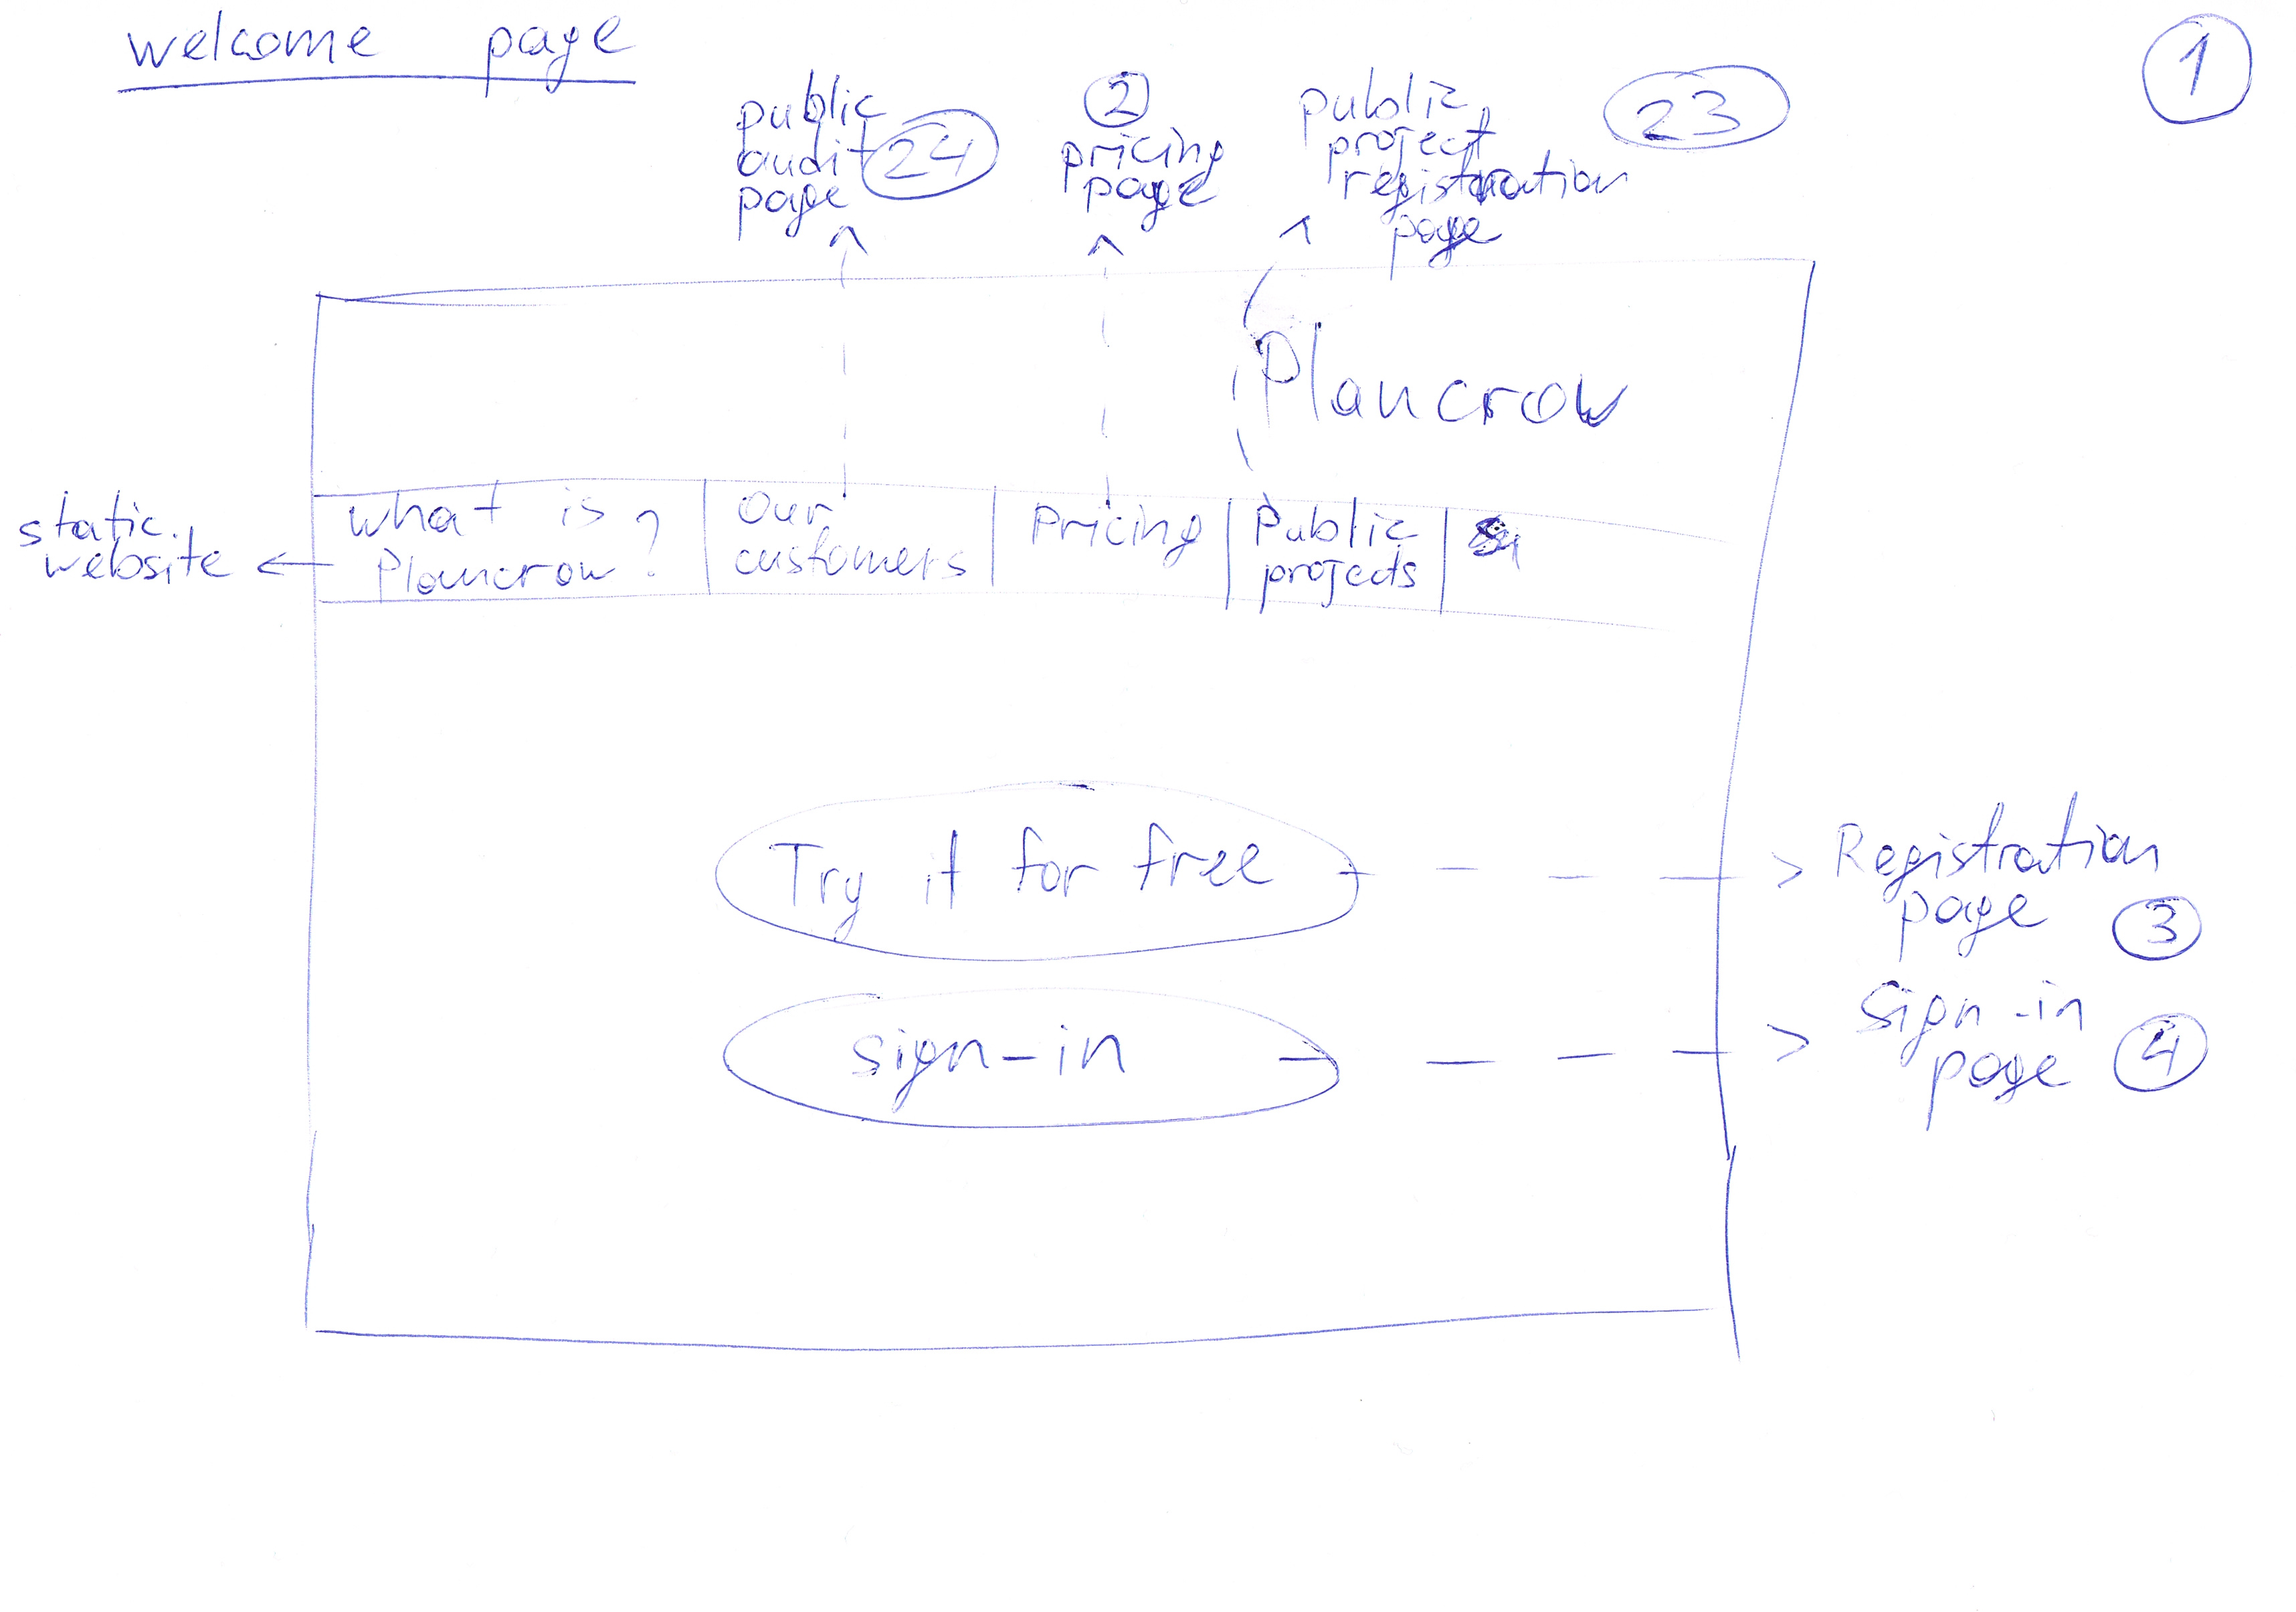 welcome page
1
public
audit 24
page
2
pricing
page
public 23
project
registration
page
Plancrow
static
website
what is
Plancrow?
Our
customers
Pricing
Public
projects
Try it for free
Registration
page 3
sign-in
Sign-in
page 4